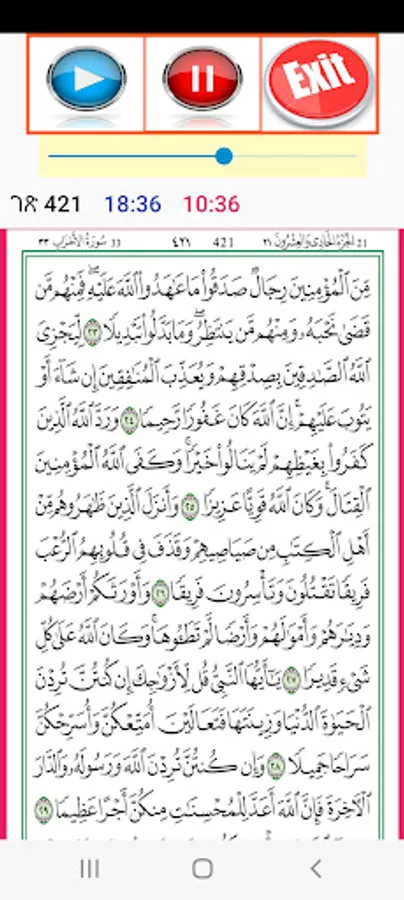 Exit
ገጽ 421 18:36 10:36
21 الجزء الحادي والعشرون ٢١ 421 ٤٢١ 33 سورة الأحزاب ٣٣
مِّنَ ٱلْمُؤْمِنِينَ رِجَالٌ صَدَقُوا۟ مَا عَٰهَدُوا۟ ٱللَّهَ عَلَيْهِ ۖ فَمِنْهُم مَّن
قَضَىٰ نَحْبَهُۥ وَمِنْهُم مَّن يَنتَظِرُ ۖ وَمَا بَدَّلُوا۟ تَبْدِيلًا ٢٣ لِّيَجْزِىَ
ٱللَّهُ ٱلصَّٰدِقِينَ بِصِدْقِهِمْ وَيُعَذِّبَ ٱلْمُنَٰفِقِينَ إِن شَآءَ أَوْ
يَتُوبَ عَلَيْهِمْ ۚ إِنَّ ٱللَّهَ كَانَ غَفُورًا رَّحِيمًا ٢٤ وَرَدَّ ٱللَّهُ ٱلَّذِينَ
كَفَرُوا۟ بِغَيْظِهِمْ لَمْ يَنَالُوا۟ خَيْرًا ۚ وَكَفَى ٱللَّهُ ٱلْمُؤْمِنِينَ
ٱلْقِتَالَ ۚ وَكَانَ ٱللَّهُ قَوِيًّا عَزِيزًا ٢٥ وَأَنزَلَ ٱلَّذِينَ ظَٰهَرُوهُم مِّنْ
أَهْلِ ٱلْكِتَٰبِ مِن صَيَاصِيهِمْ وَقَذَفَ فِى قُلُوبِهِمُ ٱلرُّعْبَ
فَرِيقًا تَقْتُلُونَ وَتَأْسِرُونَ فَرِيقًا ٢٦ وَأَوْرَثَكُمْ أَرْضَهُمْ
وَدِيَٰرَهُمْ وَأَمْوَٰلَهُمْ وَأَرْضًا لَّمْ تَطَـُٔوهَا ۚ وَكَانَ ٱللَّهُ عَلَىٰ كُلِّ
شَىْءٍ قَدِيرًا ٢٧ يَٰٓأَيُّهَا ٱلنَّبِىُّ قُل لِّأَزْوَٰجِكَ إِن كُنتُنَّ تُرِدْنَ
ٱلْحَيَوٰةَ ٱلدُّنْيَا وَزِينَتَهَا فَتَعَالَيْنَ أُمَتِّعْكُنَّ وَأُسَرِّحْكُنَّ
سَرَاحًا جَمِيلًا ٢٨ وَإِن كُنتُنَّ تُرِدْنَ ٱللَّهَ وَرَسُولَهُۥ وَٱلدَّارَ
ٱلْءَاخِرَةَ فَإِنَّ ٱللَّهَ أَعَدَّ لِلْمُحْسِنَٰتِ مِنكُنَّ أَجْرًا عَظِيمًا ٢٩